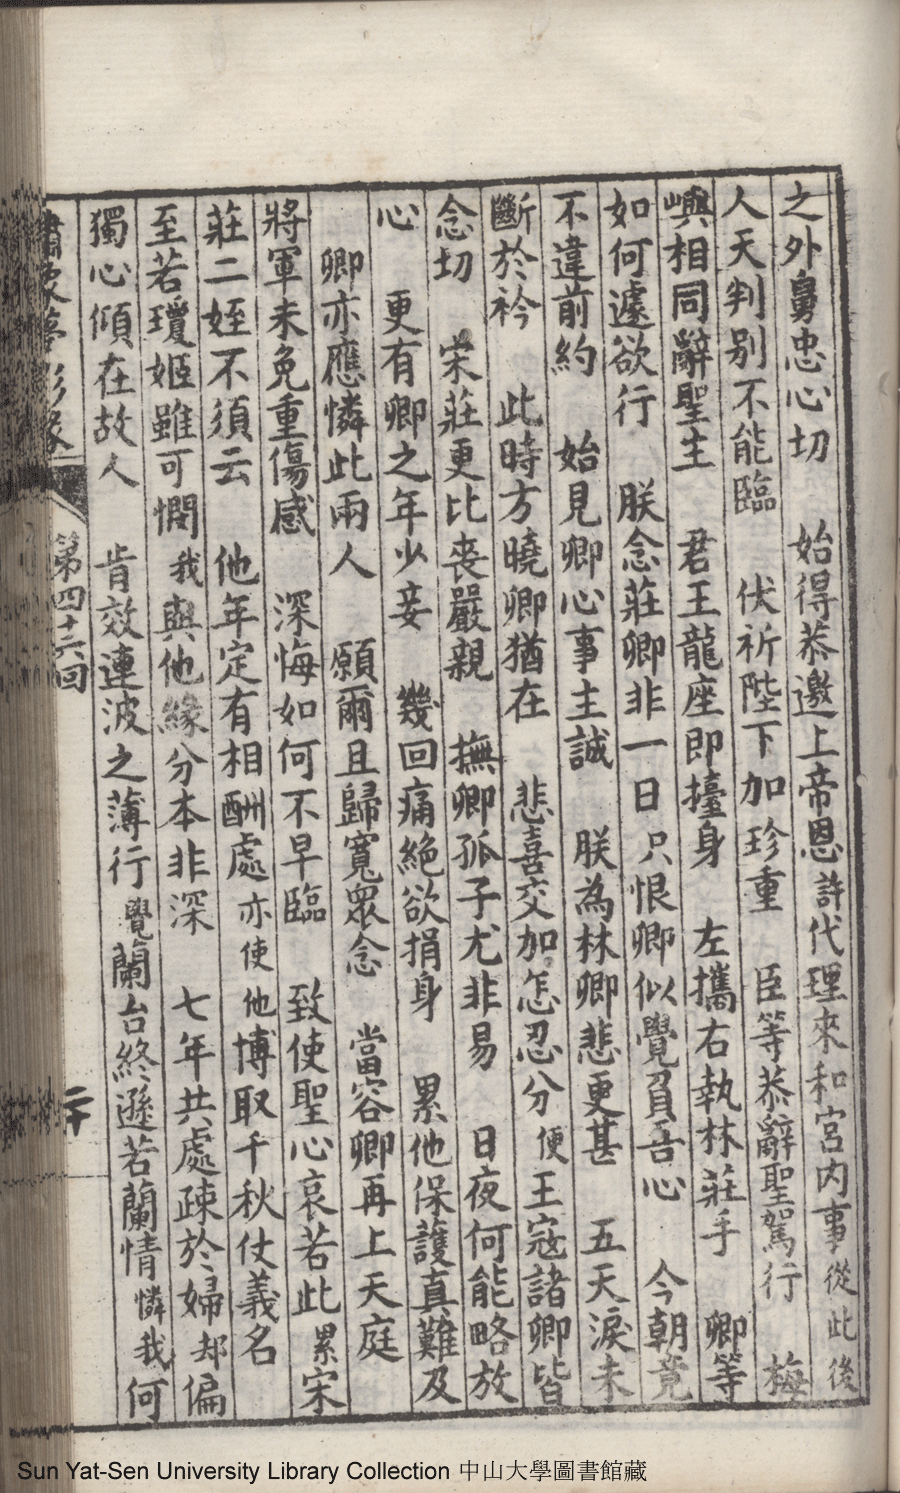 之外舅忠心切　始得恭邀上帝恩許代理來和宮內事從此後
人天判別不能臨　伏祈陛下加珍重　臣等恭辭聖駕行　梅
嶼相同辭聖生　君王龍座即擡身　左攜右執林莊手　卿等
如何遽欲行　朕念莊卿非一日只恨卿似覺負吾心　今朝竟
不違前約　始見卿心事主誠　朕為林卿悲更甚　五天淚未
斷於衿　此時方曉卿猶在　悲喜交加怎忍分便王寇諸卿皆
念切　宋莊更比喪嚴親　撫卿孤子尤非易　日夜何能略放
心　更有卿之年少妾　幾回痛絕欲捐身　累他保護真難及
卿亦應憐此兩人　願爾且歸寬眾念　當容卿再上天庭
將軍未免重傷感　深悔如何不早臨　致使聖心哀若此累宋
莊二姪不須云　他年定有相酬處亦使他博取千秋仗義名
至若瓊姬雖可憫我與他緣分本非深　七年共處疎於婦却偏
獨心傾在故人　肯效連波之薄行覺蘭台終遜若蘭情憐我何
夢影緣
第四十六回
二十
Sun Yat-Sen University Library Collection 中山大學圖書館藏